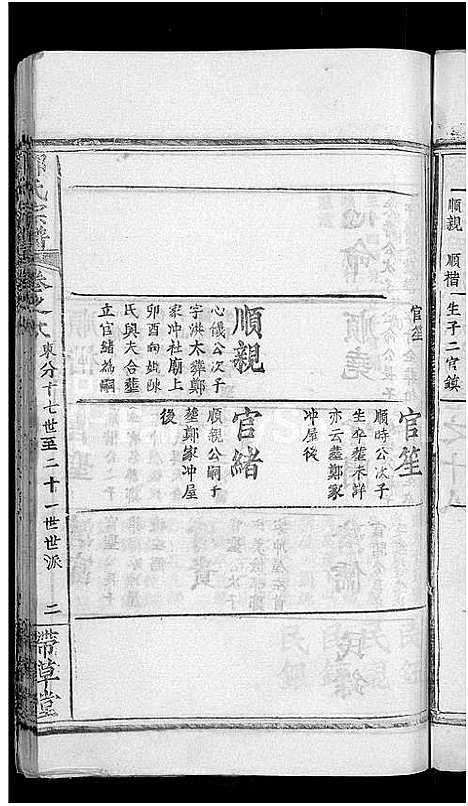 順親
順楷
生子二官鎮
官笙
順親
心儀公次子
字洪太葬鄭
家冲社廟上
卯酉向娶陳
氏與夫合塟
立官緒為嗣
官笙
順時公次子
生卒塟未詳
亦云塟鄭家
冲屋後
官緒
順親公嗣子
塟鄭家冲屋
後
氏宗譜
卷之
東分十七世至二十一世世派
二
帶草堂